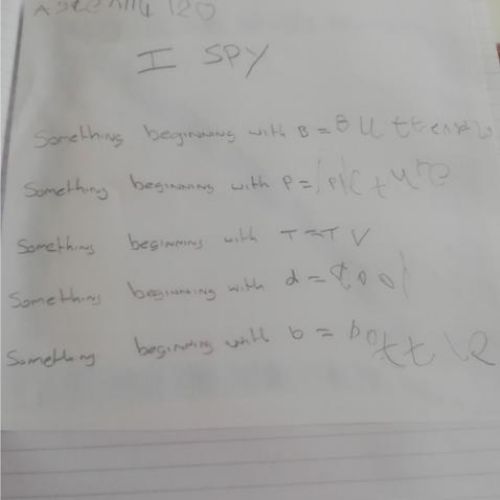 I SPY
Something beginning with B = Butterfly
Something beginning with P = Picture
Something beginning with T = TV
Something beginning with d = door
Something beginning with b = bottle